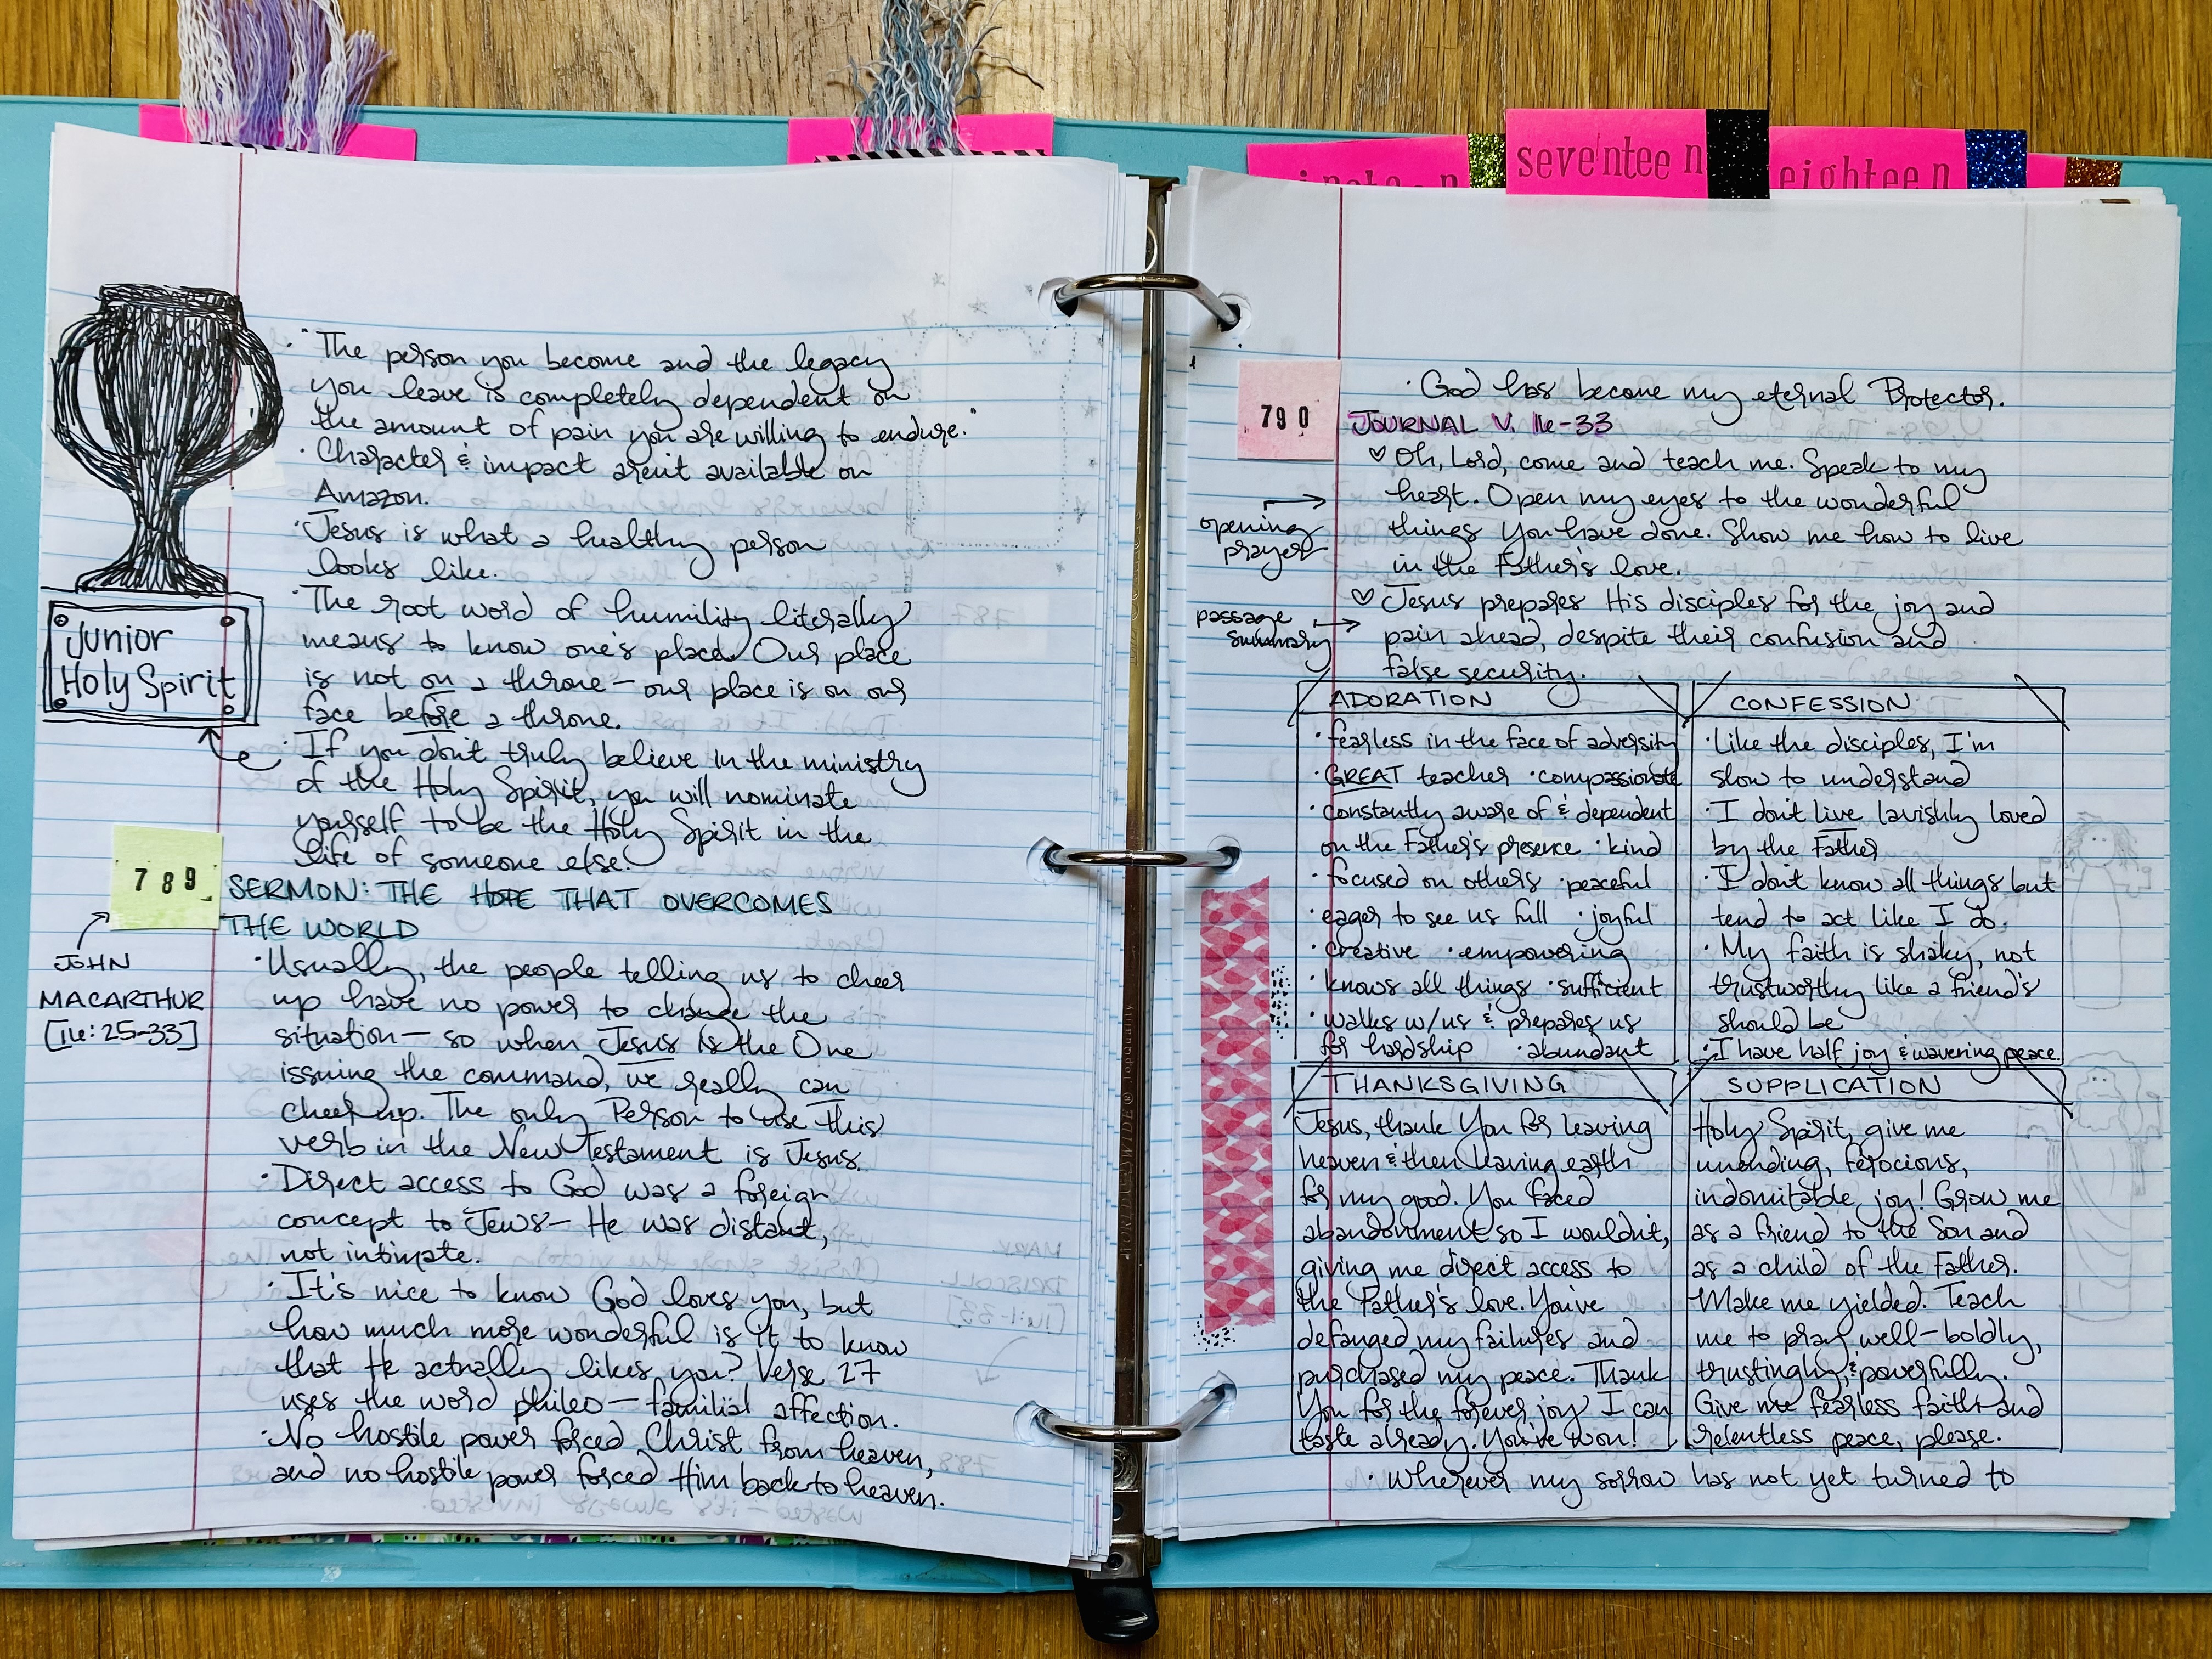 seventeen
eighteen
"The person you become and the legacy
you leave is completely dependent on
the amount of pain you are willing to endure."
· Character & impact aren't available on
Amazon.
· Jesus is what a healthy person
looks like.
· The root word of humility literally
means to know one's place. Our place
is not on a throne — our place is on our
face before a throne.
· If you don't truly believe in the ministry
of the Holy Spirit, you will nominate
yourself to be the Holy Spirit in the
life of someone else.
Junior
Holy Spirit
789
SERMON: THE HOPE THAT OVERCOMES
THE WORLD
JOHN
MACARTHUR
[16:25-33]
· Usually, the people telling us to cheer
up have no power to change the
situation — so when Jesus is the One
issuing the command, we really can
cheer up. The only Person to use this
verb in the New Testament is Jesus.
· Direct access to God was a foreign
concept to Jews — He was distant,
not intimate.
· It's nice to know God loves you, but
how much more wonderful is it to know
that He actually likes you? Verse 27
uses the word phileo — familial affection.
· No hostile power forced Christ from heaven,
and no hostile power forced Him back to heaven.
· God has become my eternal Protector.
790
JOURNAL V. 16-33
♡ Oh, Lord, come and teach me. Speak to my
heart. Open my eyes to the wonderful
things You have done. Show me how to live
in the Father's love.
opening
prayer
♡ Jesus prepares His disciples for the joy and
pain ahead, despite their confusion and
false security.
passage
summary
ADORATION
· fearless in the face of adversity
· GREAT teacher · compassionate
· constantly aware of & dependent
on the Father's presence · kind
· focused on others · peaceful
· eager to see us full · joyful
· creative · empowering
· knows all things · sufficient
· walks w/us & prepares us
for hardship · abundant
CONFESSION
· Like the disciples, I'm
slow to understand
· I don't live lavishly loved
by the Father
· I don't know all things but
tend to act like I do.
· My faith is shaky, not
trustworthy like a friend's
should be
· I have half joy & wavering peace.
THANKSGIVING
Jesus, thank You for leaving
heaven & then leaving earth
for my good. You faced
abandonment so I wouldn't,
giving me direct access to
the Father's love. You've
defanged my failures and
purchased my peace. Thank
You for the forever joy I can
taste already. You've won!
SUPPLICATION
Holy Spirit, give me
unending, ferocious,
indomitable joy! Grow me
as a friend to the Son and
as a child of the Father.
Make me yielded. Teach
me to pray well — boldly,
trustingly, & powerfully.
Give me fearless faith and
relentless peace, please.
· Wherever my sorrow has not yet turned to